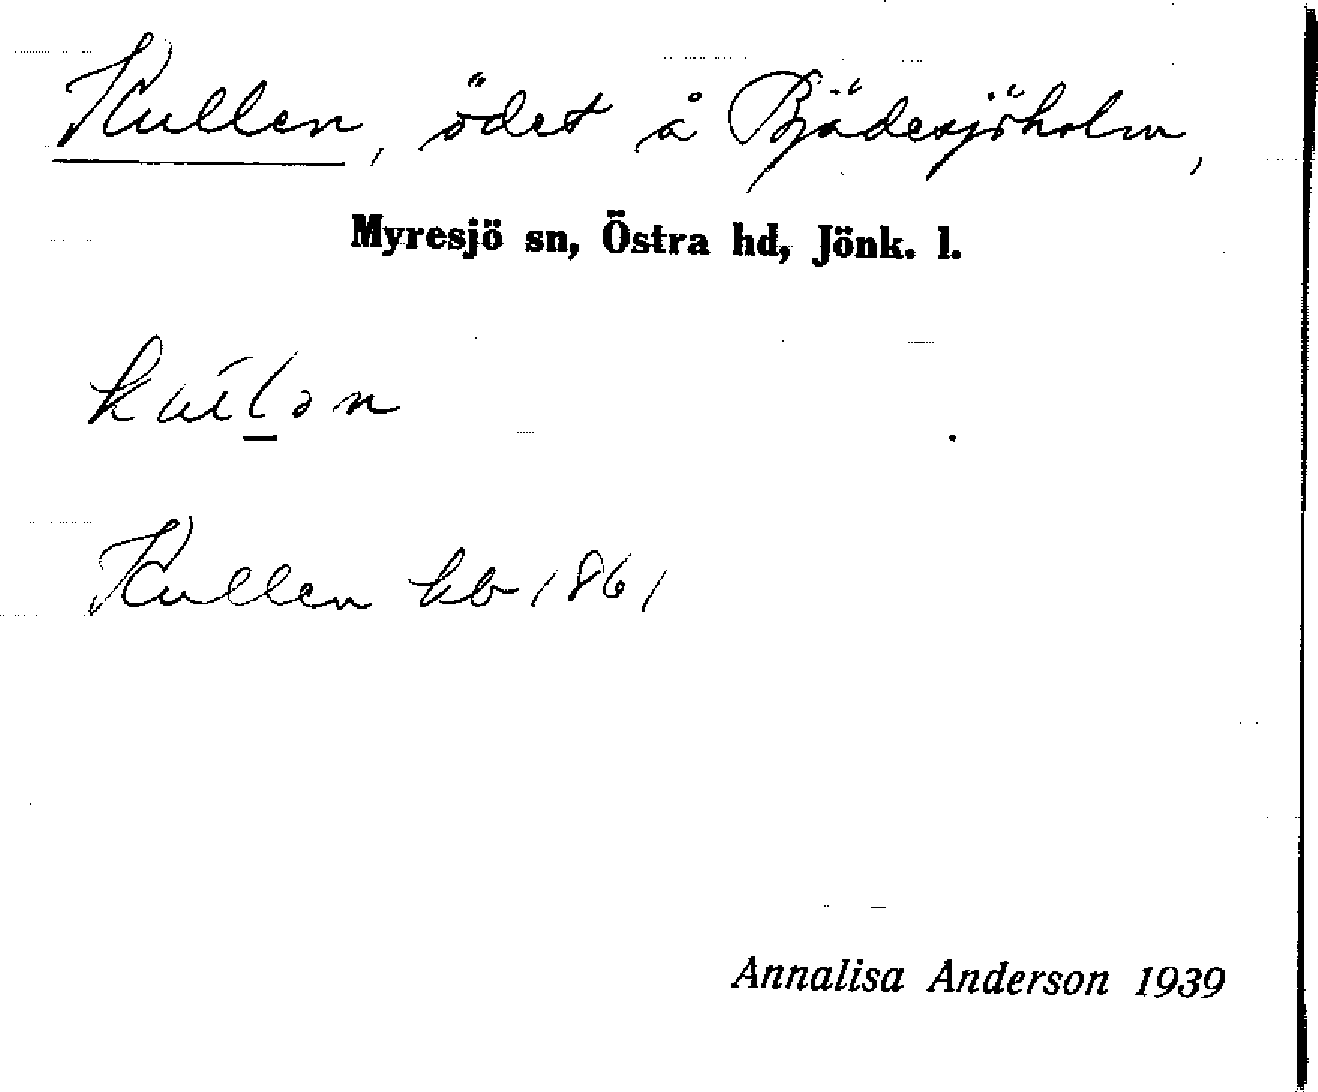 Kullen, ödet å Bjädesjöholm,
Myresjö sn, Östra hd, Jönk. l.
Kullen kb 1861
Annalisa Anderson 1939